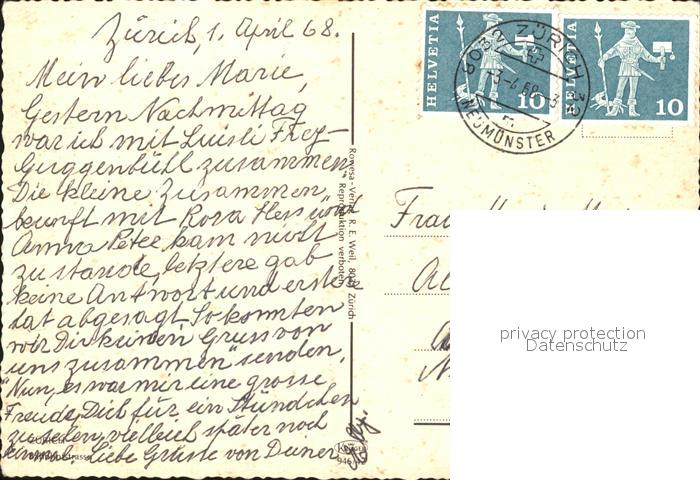 Zürich, 1. April 68.
Mein liebes Marie,
Gestern Nachmittag
war ich mit Luisli Frey-
Guggenbühl zusammen.
Die kleine Zusammen
kunft mit Rosa Hess und
Anna Peter kam nicht
zu stande, letztere gab
keine Antwort und erstere
hat abgesagt. So konnten
wir Dir keinen Gruss von
uns zusammen senden.
Nun, es war mir eine grosse
Freude, Dich für ein Stündchen
zu sehen, vielleich später noch
einmal. Liebe Grüsse von Deiner
Rowesa-Verlag R. E. Weil, 80 Zürich
Reproduktion verboten
HELVETIA
10
HELVETIA
10
ZÜRICH 32
NEUMÜNSTER
Frau
privacy protection
Datenschutz